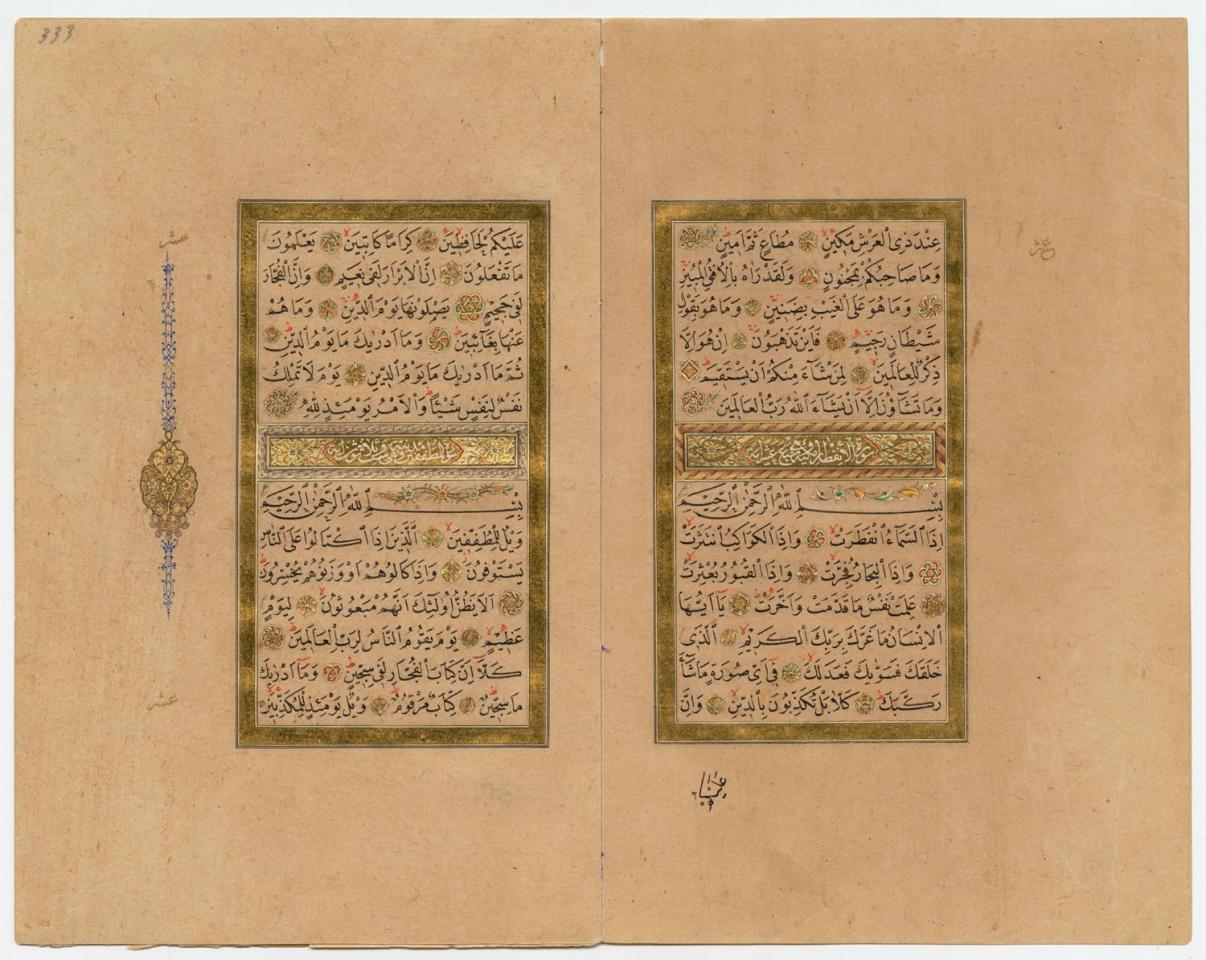 عشر
عِنْدَ ذِى الْعَرْشِ مَكِينٍ مُطَاعٍ ثَمَّ اَمِينٍ
وَمَا صَاحِبُكُمْ بِمَجْنُونٍ وَلَقَدْ رَاٰهُ بِالْاُفُقِ الْمُبِينِ
وَمَا هُوَ عَلَى الْغَيْبِ بِضَنِينٍ وَمَا هُوَ بِقَوْلِ
شَيْطَانٍ رَجِيمٍ فَاَيْنَ تَذْهَبُونَ اِنْ هُوَ اِلَّا
ذِكْرٌ لِلْعَالَمِينَ لِمَنْ شَآءَ مِنْكُمْ اَنْ يَسْتَقِيمَ
وَمَا تَشَآؤُنَ اِلَّآ اَنْ يَشَآءَ اللهُ رَبُّ الْعَالَمِينَ
سورة الانفطار
بِسْمِ اللهِ الرَّحْمٰنِ الرَّحِيمِ
اِذَا السَّمَآءُ انْفَطَرَتْ وَاِذَا الْكَوَاكِبُ انْتَثَرَتْ
وَاِذَا الْبِحَارُ فُجِّرَتْ وَاِذَا الْقُبُورُ بُعْثِرَتْ
عَلِمَتْ نَفْسٌ مَا قَدَّمَتْ وَاَخَّرَتْ يَآ اَيُّهَا
الْاِنْسَانُ مَا غَرَّكَ بِرَبِّكَ الْكَرِيمِ الَّذِى
خَلَقَكَ فَسَوّٰيكَ فَعَدَلَكَ فِىٓ اَىِّ صُورَةٍ مَا شَآءَ
رَكَّبَكَ كَلَّا بَلْ تُكَذِّبُونَ بِالدِّينِ وَاِنَّ
333
عشر
عَلَيْكُمْ لَحَافِظِينَ كِرَامًا كَاتِبِينَ يَعْلَمُونَ
مَا تَفْعَلُونَ اِنَّ الْاَبْرَارَ لَفِى نَعِيمٍ وَاِنَّ الْفُجَّارَ
لَفِى جَحِيمٍ يَصْلَوْنَهَا يَوْمَ الدِّينِ وَمَا هُمْ
عَنْهَا بِغَآئِبِينَ وَمَآ اَدْرٰيكَ مَا يَوْمُ الدِّينِ
ثُمَّ مَآ اَدْرٰيكَ مَا يَوْمُ الدِّينِ يَوْمَ لَا تَمْلِكُ
نَفْسٌ لِنَفْسٍ شَيْئًا وَالْاَمْرُ يَوْمَئِذٍ لِلّٰهِ
بِسْمِ اللهِ الرَّحْمٰنِ الرَّحِيمِ
وَيْلٌ لِلْمُطَفِّفِينَ الَّذِينَ اِذَا اكْتَالُوا عَلَى النَّاسِ
يَسْتَوْفُونَ وَاِذَا كَالُوهُمْ اَوْ وَزَنُوهُمْ يُخْسِرُونَ
اَلَا يَظُنُّ اُولٰٓئِكَ اَنَّهُمْ مَبْعُوثُونَ لِيَوْمٍ
عَظِيمٍ يَوْمَ يَقُومُ النَّاسُ لِرَبِّ الْعَالَمِينَ
كَلَّآ اِنَّ كِتَابَ الْفُجَّارِ لَفِى سِجِّينٍ وَمَآ اَدْرٰيكَ
مَا سِجِّينٌ كِتَابٌ مَرْقُومٌ وَيْلٌ يَوْمَئِذٍ لِلْمُكَذِّبِينَ
عشر